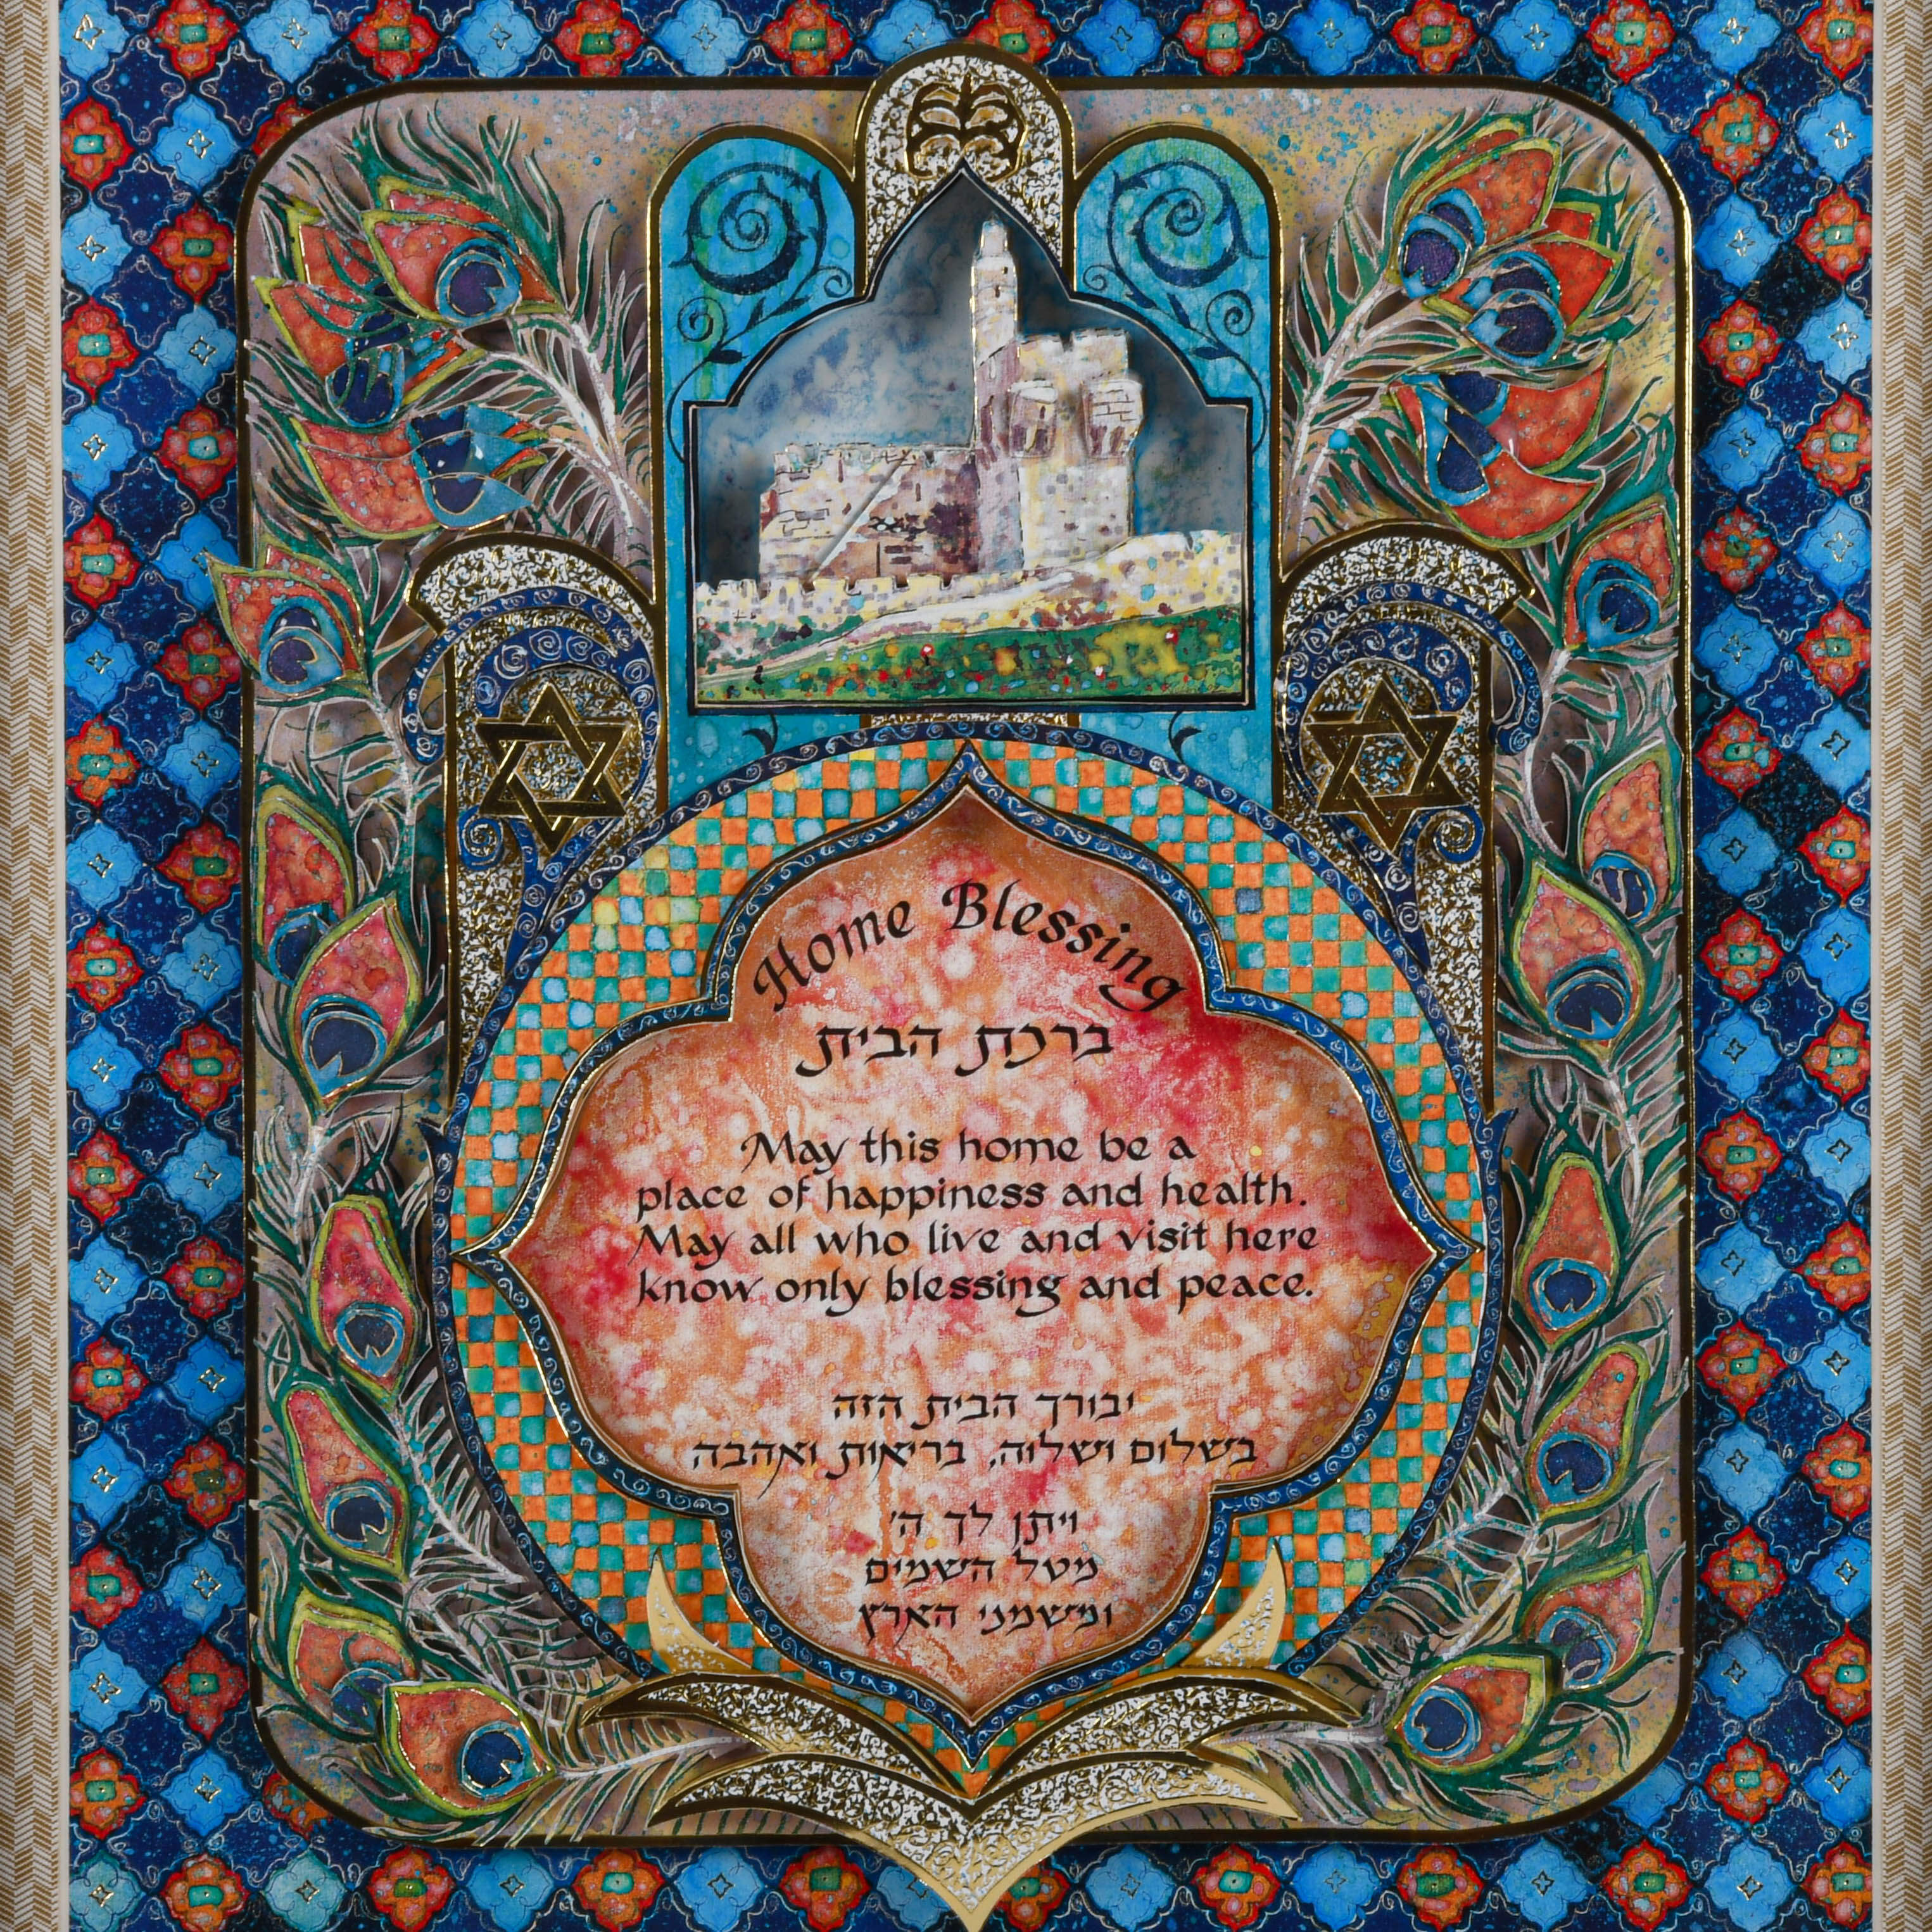 Home Blessing
ברכת הבית
May this home be a
place of happiness and health.
May all who live and visit here
know only blessing and peace.
יבורך הבית הזה
בשלום ושלוה, בריאות ואהבה
ויתן לך ה'
מטל השמים
ומשמני הארץ